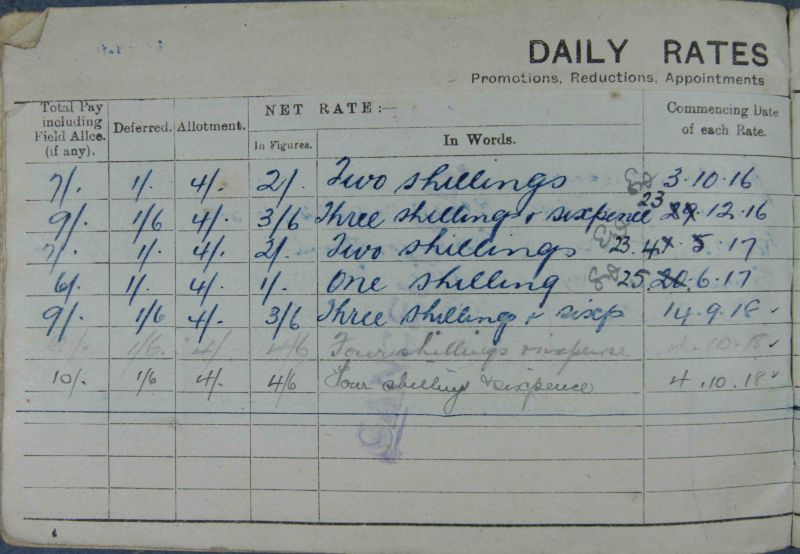 DAILY RATES
Promotions, Reductions, Appointments
Total Pay including Field Allce. (if any). Deferred. Allotment. NET RATE:— In Figures. In Words. Commencing Date of each Rate.
7/. 1/. 4/. 2/. Two shillings 3.10.16
9/. 1/6 4/. 3/6 Three shillings & sixpence 23 .12.16
7/. 1/. 4/. 2/. Two shillings 23.4 .17
6/. 1/. 4/. 1/. One shilling 25 20.6.17
9/. 1/6 4/. 3/6 Three shillings & sixp 14.9.18
1/6. 4/ 4/6 Four shillings & sixpense 4.10.18
10/. 1/6 4/. 4/6 Four shillings & sixpence 4.10.18